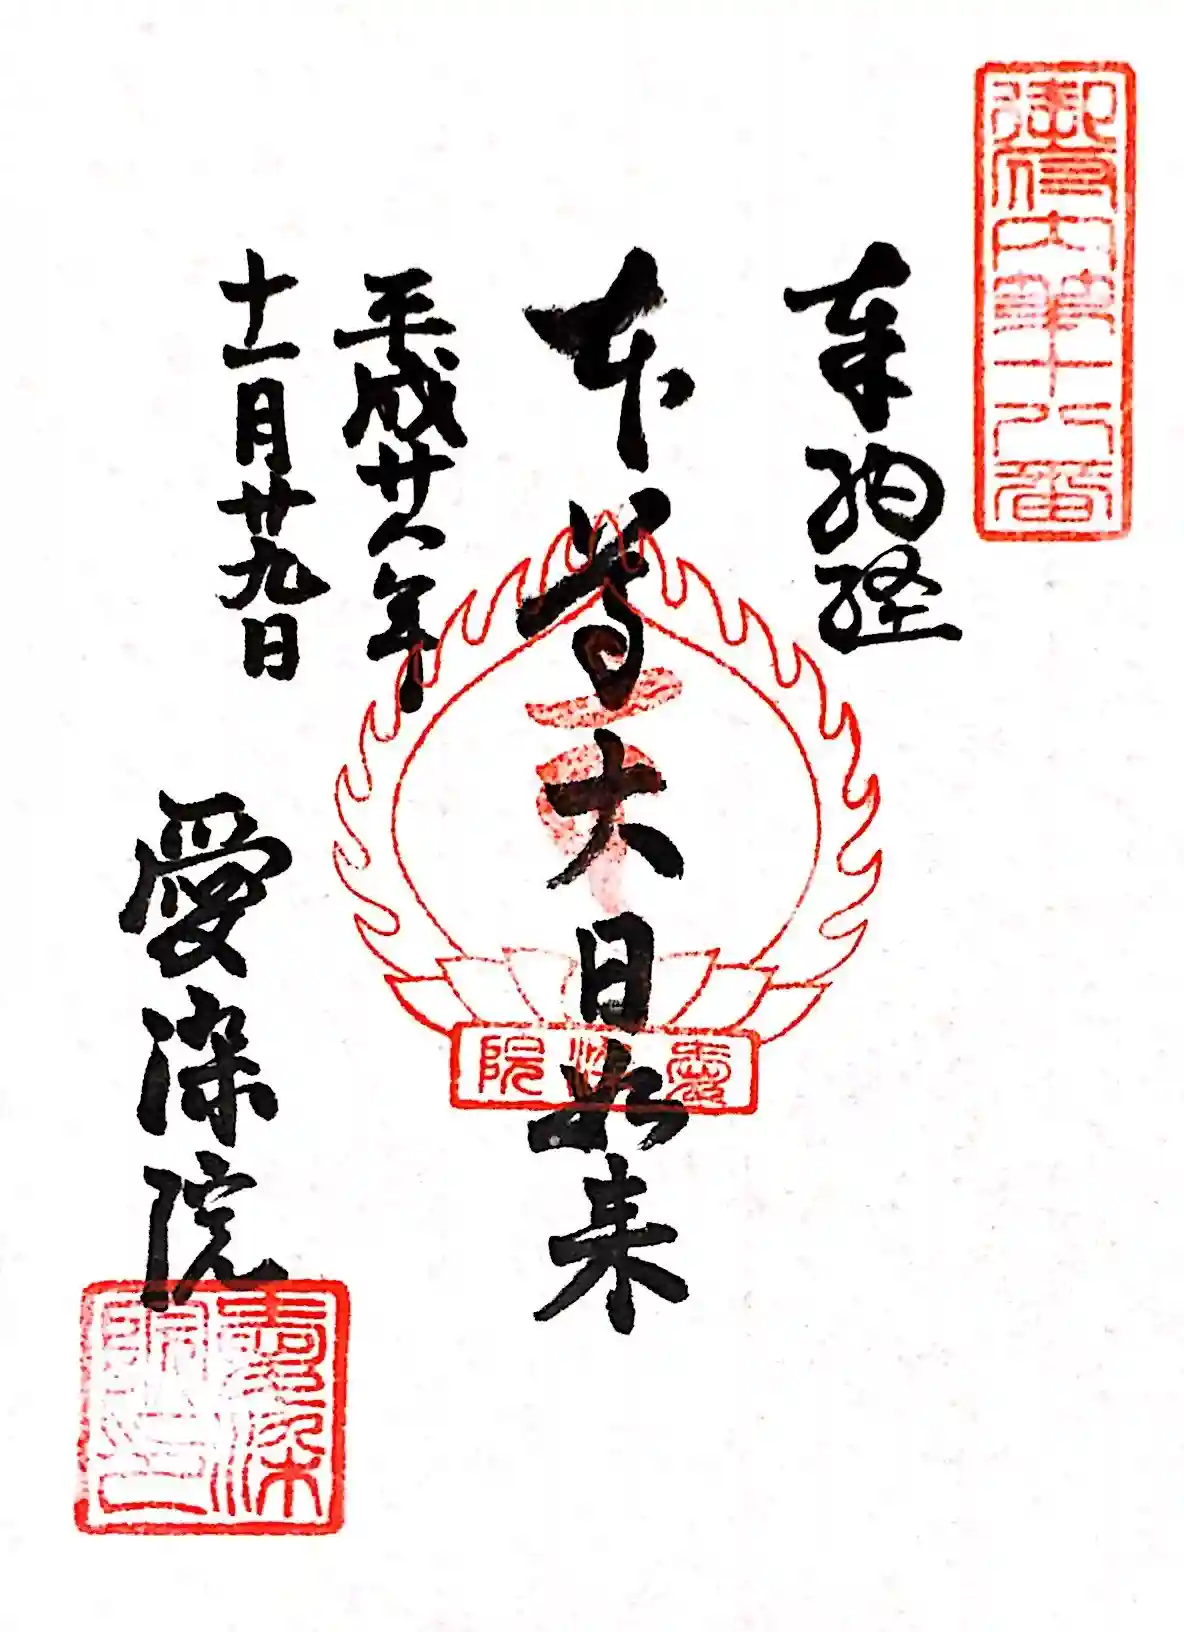 御府内第十八番
奉納経
本尊大日如来
平成廿八年
十一月廿九日
愛染院
愛染院
愛染院印